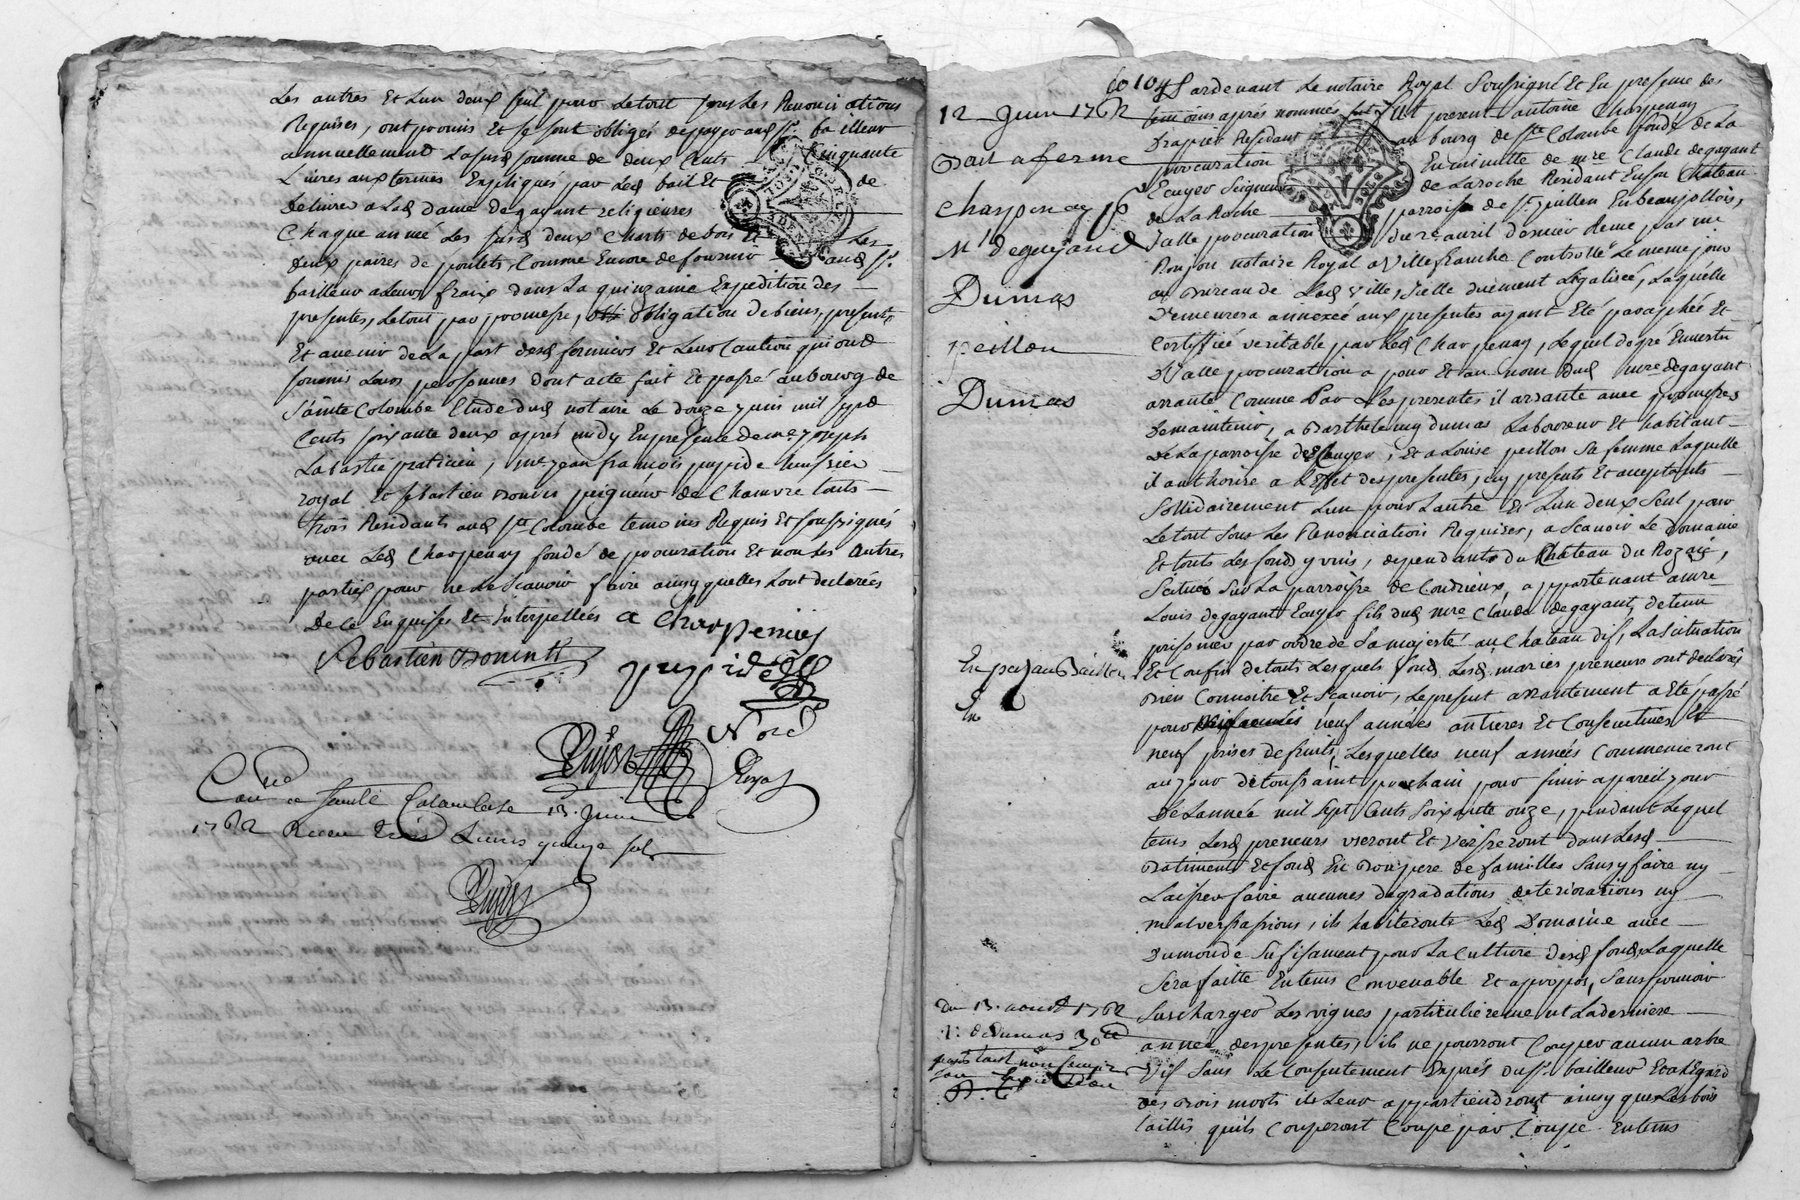 Les autres Et Lun deux seul pour Letout sous Les Renonciations
Requises, ont promis Et se sont obligés de payer aud Sr. bailleur
annuellement La susd somme de deux Cents Cinquante
Livres aux termes Expliqués par Led bail Et de
delivrer a Lad dame degayant religieuses
Chaque année Les susd deux Charts de bois Et Les
deux paires de poulets, Comme Encore de fournir aud Sr.
bailleur a Leurs fraix dans La quinzaine Expedition des
presentes, Letout par promesse, obligation de biens presents
Et avenir de La part desd fermiers Et Leur Caution qui ont
soumis Leurs personnes dont acte fait Et passé au bourg de
Sainte Colombe Etude dud notaire Le douze juin mil sept
Cents soixante deux après midy En presence de me. joseph
Labastie praticien, me. jean francois pupide huissier
royal Et sebastien Bonin peigneur de Chanvre touts
trois Residants aud Ste Colombe temoins Requis Et soussignés
avec Led Charpenay fondé de procuration Et non Les autres
parties pour ne Le scavoir faire ainsy quelles Lont declarées
De Ce Enquises Et Interpellées a Charpenay
Sebastien Bonin
pupide
Dujas
Conlé a sainte Colombe le 13. Juin
1762 Receu trois Livres quinze sols
Dujas
12 Juin 1762
Bail a ferme
Charpenay
Mr degayand
Dumas
peillon
Dumas
Pardevant Le notaire Royal Soussigné Et En presence des
temoins après nommés fut present antoine Charpenay
Drapier Residant au bourg de Ste Colombe fondé de La
procuration En minutte de mre Claude degayant
Ecuyer Seigneur de Laroche Residant En son Chateau
de La Roche parroisse de St jullien En beaujollois,
Jcelle procuration du 2 avril dernier Receue par me
Ronjon notaire Royal a Villefranche Controllé Le meme jour
au Bureau de Lad Ville, Jcelle duement Legalisée, Laquelle
Demeurera annexée aux presentes ayant Eté paraphée Et
Certifiée veritable par Led Charpenay, Lequel de gré En vertu
D'Jcelle procuration a pour Et au nom dud mre degayant
arranté Comme Par Les presentes il arrante avec promesses
De maintenir, a Barthelemy dumas Laboureur Et habitant
de La parroisse de, Et a Louise peillon Sa femme Laquelle
il authorise a L'Effet des presentes, cy presents Et acceptants
Sollidairement Lun pour Lautre Et Lun deux Seul pour
Letout sous Les Renonciation Requises, a Scavoir Le domaine
Et touts Les fonds y unis, dependants du Chateau du Rozais,
Scitués Sur La parroisse de Condrieux, appartenant a mre
Louis degayant Ecuyer fils dud mre Claude degayant, detenu
prisonnier par ordre de Sa majesté au Chateau dif, La Scituation
Et Confin de touts Lesquels fonds Lesd mariés preneurs ont declarés
Bien Connoitre Et Scavoir, Le present arrantement a Eté passé
pour neuf années antieres Et Consecutives Et
neuf prises de fruits, Lesquelles neuf années Commenceront
au jour de toussaint prochain pour finir a pareil jour
de L'année mil sept Cents Soixante onze, pendant Lequel
tems Lesd preneurs useront Et verseront dans Lesd
Batiments Et fonds En Bon pere de familles Sans y faire ny
Laisser faire aucunes degradations deteriorations ny
malversations, ils habiteronts Led Domaine avec
Du monde Sufisament pour La culture desd fonds Laquelle
Sera faitte En tems Convenable Et a propos, Sans pouvoir
Surcharger Les vignes particulierement La derniere
année des presentes, ils ne pourront Couper aucun arbre
vif Sans Le Consentement Exprés du Sr. bailleur Et a L'Egard
des Bois morts ils Leur appartiendront ainsy que Les bois
taillis quils Couperont Coupe par Coupe En tems
du 13. aoust 1762